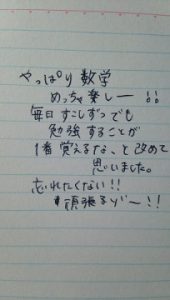 やっぱり数学
めっちゃ楽しー!!
毎日すこしずつでも
勉強することが
1番覚えるな、と改めて
思いました。
忘れたくない!!
頑張るぞ〜!!